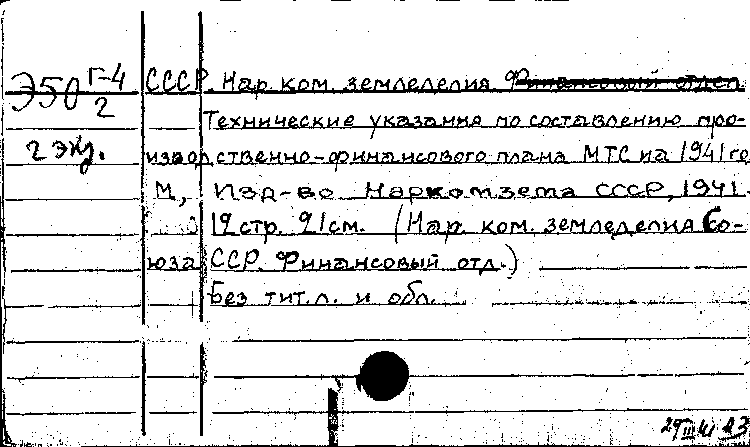 Э50 Г-4/2
2 экз.
СССР. Нар. ком. земледелия. Финансовый отдел.
Технические указания по составлению про-
изводственно-финансового плана МТС на 1941 го
М., Изд-во Наркомзема СССР, 1941.
12 стр. 21 см. (Нар. ком. земледелия Со-
юза ССР. Финансовый отд.)
Без тит. л. и обл.
29 III 41